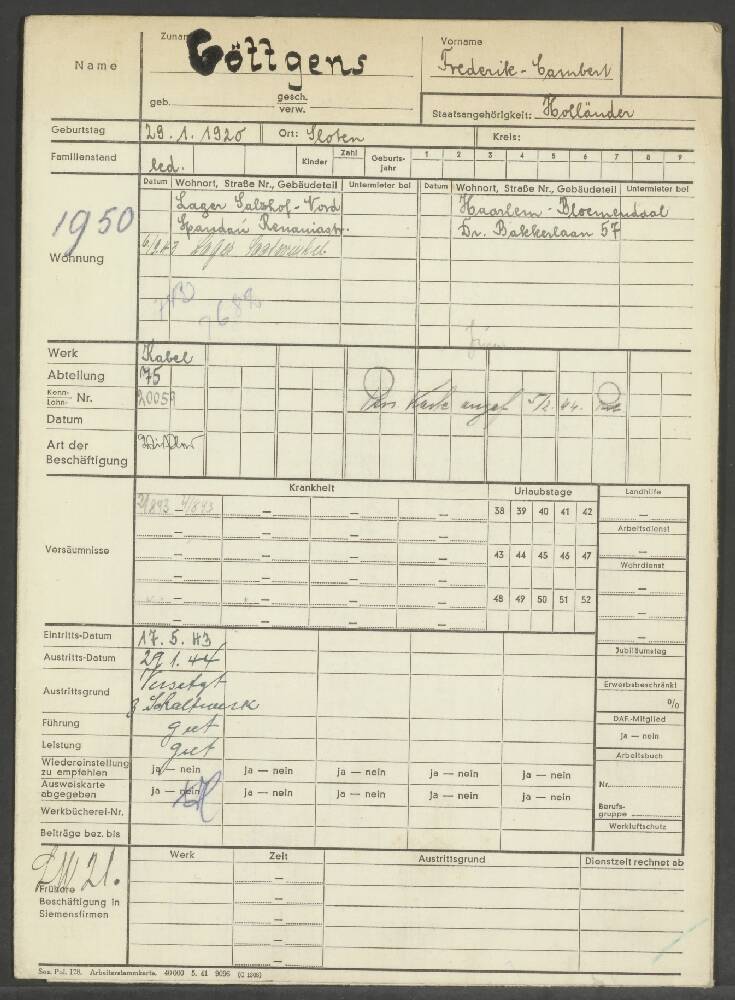 Name
Zuname
Göttgens
Vorname
Frederik - Lambert
geb.
gesch.
verw.
Staatsangehörigkeit: Holländer
Geburtstag 29.1.1920 Ort: Sloten Kreis:
Familienstand led. Kinder Zahl Geburts-jahr 1 2 3 4 5 6 7 8 9
Datum Wohnort, Straße Nr., Gebäudeteil Untermieter bei Datum Wohnort, Straße Nr., Gebäudeteil Untermieter bei
1950
Wohnung
Lager Salzhof-Nord Haarlem - Bloemendaal
Spandau Renaniastr. Dr. Bakkerlaan 57
Lager
Werk Kabel
Abteilung 75
Kenn-
Lohn- Nr. 20059
Karte 5/2. 44.
Datum
Art der
Beschäftigung
Krankheit Urlaubstage Landhilfe
38 39 40 41 42
Arbeitsdienst
Versäumnisse
43 44 45 46 47
Wehrdienst
48 49 50 51 52
Eintritts-Datum 17.5.43
Jubiläumstag
Austritts-Datum 29.1.44
Austrittsgrund Versetzt
z. Schaltwerk
Erwerbsbeschränkt
%
Führung gut
DAF.-Mitglied
ja — nein
Leistung gut
Arbeitsbuch
Wiedereinstellung
zu empfehlen ja — nein ja — nein ja — nein ja — nein ja — nein
Ausweiskarte
abgegeben ja — nein ja — nein ja — nein ja — nein ja — nein
Nr.
Werkbücherei-Nr.
Berufs-
gruppe
Beiträge bez. bis
Werkluftschutz
Werk Zeit Austrittsgrund Dienstzeit rechnet ab
21.
Frühere
Beschäftigung in
Siemensfirmen
Soz. Pol. 128. Arbeiterstammkarte. 40000 5. 41 9096